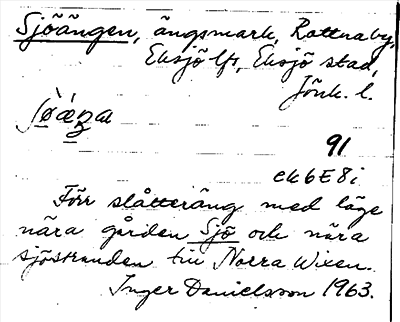 Sjöängen, ängsmark, Rottnaby,
Eksjö lfs, Eksjö stad,
Jönk. l.
91
ek 6E8i
Förr slåtteräng med läge
nära gården Sjö och nära
sjöstranden till Norra Wixen.
Inger Danielsson 1963.